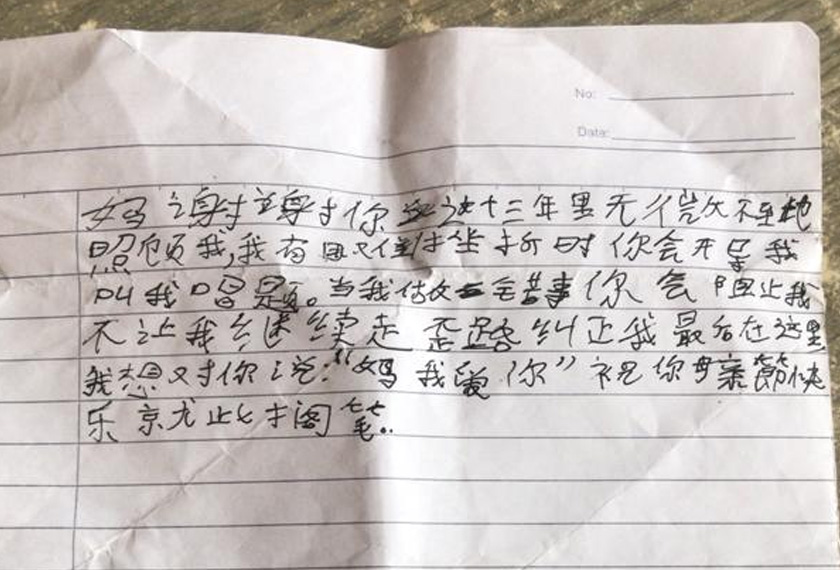 No:
Date:
妈谢谢你这十三年里无微不至地
照顾我,我有困又住挫折时你会开导我
叫我。当我做错事你会阻止我
不让我继续走歪路纠正我最后在这里
我想对你说:“妈我爱你”祝你母亲節快
乐京尤止匕才阁笔..